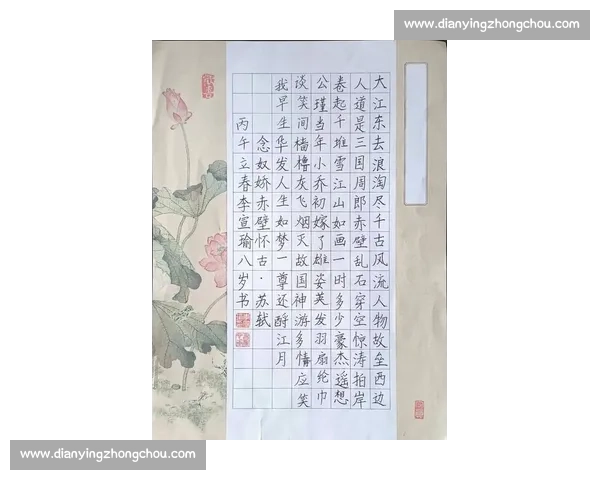 www.dianyingzhongchou.com
大江东去浪淘尽千古风流人物故垒西边
人道是三国周郎赤壁乱石穿空惊涛拍岸
卷起千堆雪江山如画一时多少豪杰遥想
公瑾当年小乔初嫁了雄姿英发羽扇纶巾
谈笑间樯橹灰飞烟灭故国神游多情应笑
我早生华发人生如梦一尊还酹江月
念奴娇赤壁怀古·苏轼
丙午立春李宣瑜八岁书
www.dianyingzhongchou.com